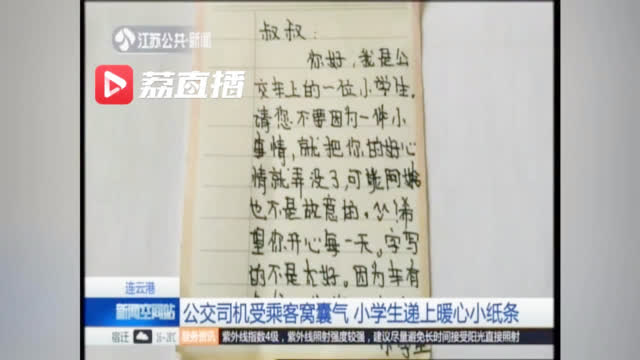 江苏公共·新闻
荔直播
叔叔：
你好，我是公
交车上的一位小学生。
请您不要因为一件小
事情，就把你的好心
情就弄没了，可能阿姨
也不是故意的。
希
望你开心每一天。字写
的不是太好。因为车有
连云港
新闻空间站
公交司机受乘客窝囊气 小学生递上暖心小纸条
宿迁 16~28℃
服务资讯
紫外线指数4级，紫外线照射强度较强，建议尽量避免长时间接受阳光直接照射